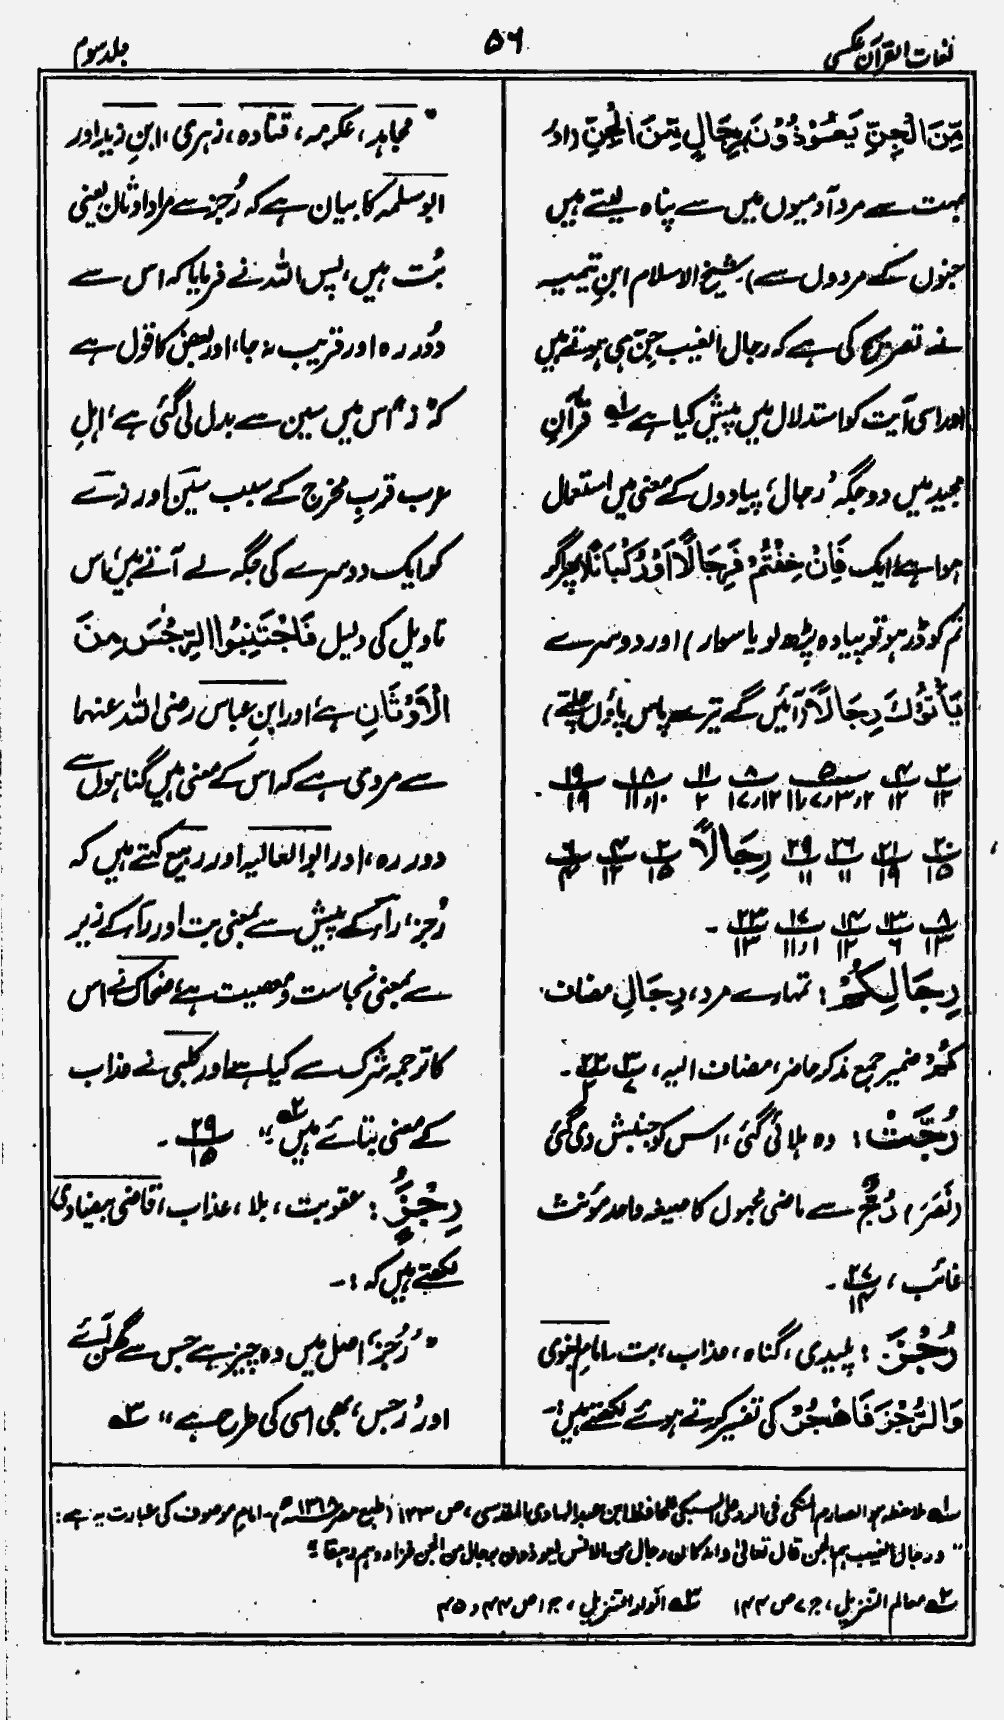 لغات القرآن عکسی
۵۶
جلد سوم
مِّنَ الْجِنِّ یَعُوْذُوْنَ بِرِجَالٍ مِّنَ الْجِنِّ (اور
بہت سے مرد آدمیوں میں سے پناہ لیتے ہیں
جنوں کے مردوں سے) شیخ الاسلام ابنِ تیمیہ
نے تصریح کی ہے کہ رجال الغیب جنّ ہی ہوتے ہیں
اور اسی آیت کو استدلال میں پیش کیا ہے ؂۱ قرآنِ
مجید میں دو جگہ "رجال" پیادوں کے معنی میں استعمال
ہوا ہے ایک فَاِنْ خِفْتُمْ فَرِجَالًا اَوْ رُکْبَانًا (پھر اگر
تم کو ڈر ہو تو پیادہ پڑھ لو یا سوار) اور دوسرے
یَأْتُوْكَ رِجَالًا (آئیں گے تیرے پاس پاؤں چلتے)
۲/۱۲ ۴/۱۲ ۵/۲،۳،۷،۱۱ ۸/۱۲،۱۷ ۱۱/۲ ۱۸/۱۰،۱۱ ۱۹/۱۹ ۔
۲۰/۱۵ ۲۱/۱۹ ۲۶/۱۱ ۲۹/۱۱ رِجَالًا ۲/۱۵ ۴/۱۲ ۶/۴
۸/۱۳ ۱۳/۶ ۱۴/۱۲ ۱۷/۱،۱۱ ۲۳/۱۳ ۔
رِجَالِکُمْ : تمہارے مرد، رِجَالِ مضاف
کُمْ ضمیر جمع مذکر حاضر، مضاف الیہ، ۳/۷ ۲۲/۲ ۔
رُجَّتْ : وہ ہلائی گئی، اس کو جنبش دی گئی
(نَصَرَ) رَجٌّ سے ماضی مجہول کا صیغہ واحد مؤنث
غائب، ۲۷/۱۴ ۔
رُجْزَ : پلیدی، گناہ، عذاب، بت۔ امام بغوی
وَالرُّجْزَ فَاھْجُرْ کی تفسیر کرتے ہوئے لکھتے ہیں:۔
" مجاہد، عکرمہ، قتادہ، زہری، ابنِ زید اور
ابو سلمہ کا بیان ہے کہ رُجز سے مراد اوثان یعنی
بُت ہیں، پس اللہ نے فرمایا کہ اس سے
دُور رہ اور قریب نہ جا، اور بعض کا قول ہے
کہ "ز" اس میں سین سے بدل لی گئی ہے، اہلِ
عرب قربِ مخرج کے سبب سین اور زے
کو ایک دوسرے کی جگہ لے آتے ہیں، اس
تاویل کی دلیل فَاجْتَنِبُوا الرِّجْسَ مِنَ
الْاَوْثَانِ ہے، اور ابنِ عباس رضی اللہ عنہما
سے مروی ہے کہ اس کے معنی ہیں گناہوں سے
دور رہ، اور ابو العالیہ اور ربیع کہتے ہیں کہ
رُجز، رآ کے پیش سے بمعنی بت اور رآ کے زیر
سے بمعنی نجاست و معصیت ہے، ضحاک نے اس
کا ترجمہ شرک سے کیا ہے اور کلبی نے عذاب
کے معنی بتائے ہیں" ؂۲ ۲۹/۱۵ ۔
رِجْزٌ : عقوبت، بلا، عذاب، قاضی بیضاوی
لکھتے ہیں کہ :۔
" رُجز، اصل میں وہ چیز ہے جس سے گھن آئے
اور رُجس، بھی اسی کی طرح ہے" ؂۳
؂۱ ملاحظہ ہو الصارم المنکی فی الرد علی السبکی للحافظ ابن عبد الہادی المقدسی، ص ۱۳۳ (طبع مصر ۱۳۱۸ھ)۔ امام موصوف کی عبارت یہ ہے:
"ورجال الغیب ہم الجن قال تعالیٰ وانہ کان رجال من الانس یعوذون برجال من الجن فزادوہم رہقا"
؂۲ معالم التنزیل، ج ۷ ص ۱۴۴ ؂۳ انوار التنزیل، ج ۱ ص ۴۴ و ۴۵